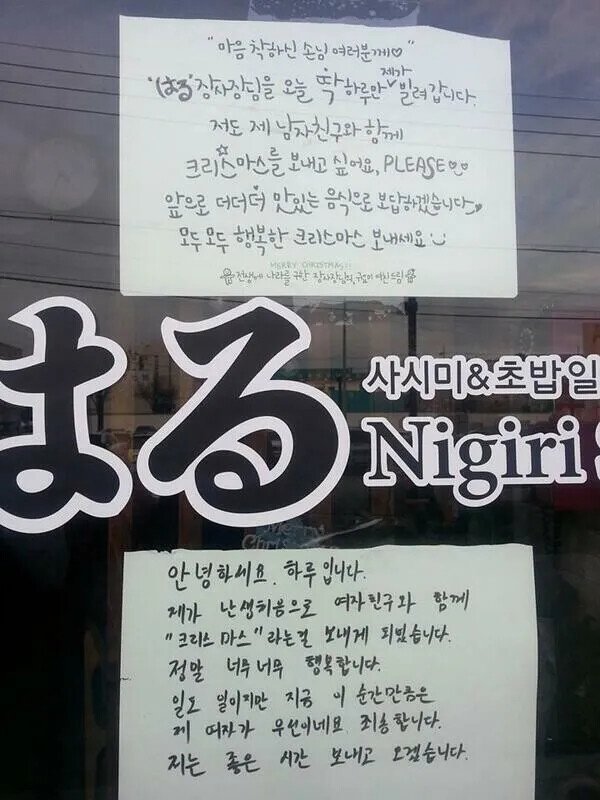 "마음 착하신 손님 여러분께♡"
'はる' 장사장님을 오늘 딱 하루만 제가 빌려 갑니다.
저도 제 남자친구와 함께
크리스마스를 보내고 싶어요, PLEASE
앞으로 더더더 맛있는 음식으로 보답하겠습니다
모두 모두 행복한 크리스마스 보내세요
MERRY CHRISTMAS!!
전생에 나라를 구한 장사장님의 여친드림
はる
사시미&초밥일
Nigiri S
Merry
Chris
안녕하세요. 하루입니다.
제가 난생처음으로 여자친구와 함께
"크리스마스"라는걸 보내게 되었습니다.
정말 너무너무 행복합니다.
일도 일이지만 지금 이 순간만큼은
제 여자가 우선이네요 죄송합니다.
저는 좋은 시간 보내고 오겠습니다.